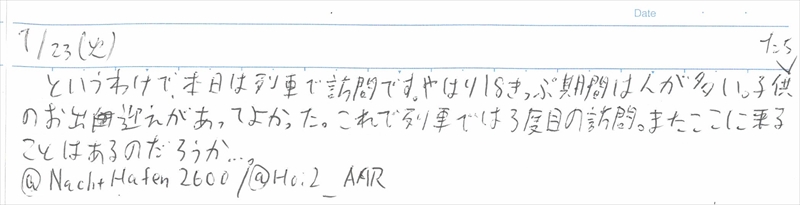 Date
7/23(火)
たち
というわけで、本日は列車で訪問です。やはり18きっぷ期間は人が多い。子供
のお出迎えがあってよかった。これで列車では3度目の訪問。またここに乗る
ことはあるのだろうか…。
@NachtHafen2600/@Hoi2_AAR